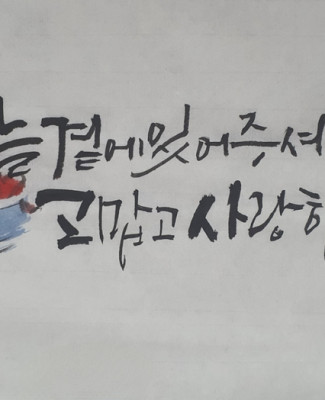 늘 곁에 있어주셔
고맙고 사랑하